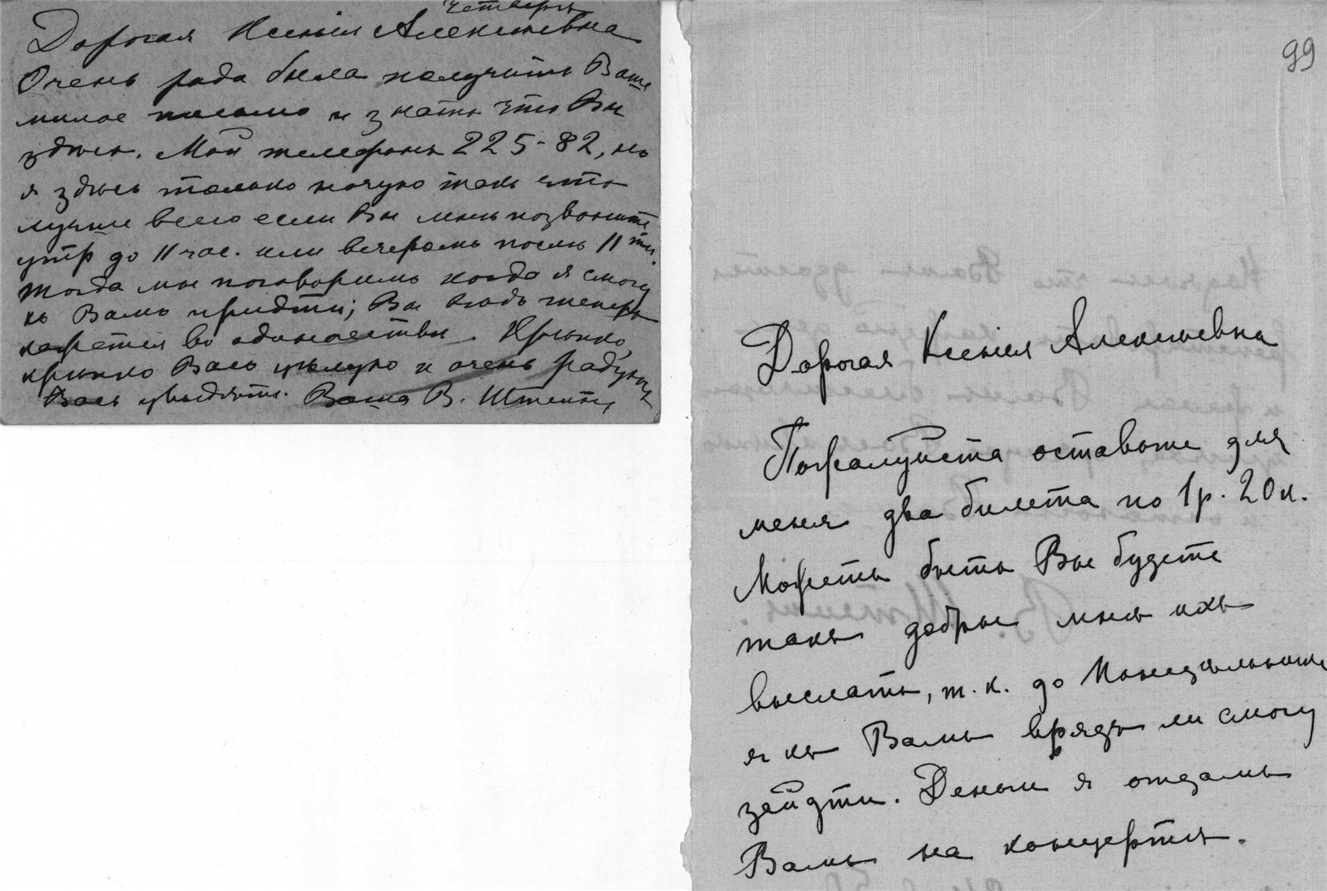 Четвергъ
Дорогая Ксенія Алексѣевна
Очень рада была получить Ваше
милое письмо и знать что Вы
здѣсь. Мой телефонъ 225-82, но
я здѣсь только ночую такъ что
лучше всего если Вы мнѣ позвоните
утр до 11 час. или вечеромъ послѣ 11 ти.
Тогда мы поговоримъ когда я смогу
къ Вамъ придти; Вы вѣдь теперь
кажется во одиночествѣ. Крѣпко,
крѣпко Васъ цѣлую и очень радуюсь
Васъ увидѣть. Ваша В. Штейнъ
99
Дорогая Ксенія Алексѣевна
Пожалуйста оставьте для
меня два билета по 1 р. 20 к.
Можетъ быть Вы будете
такъ добры мнѣ ихъ
выслать, т. к. до Понедѣльника
я къ Вамъ врядъ ли смогу
зайдти. Деньги я отдамъ
Вамъ на концертѣ.